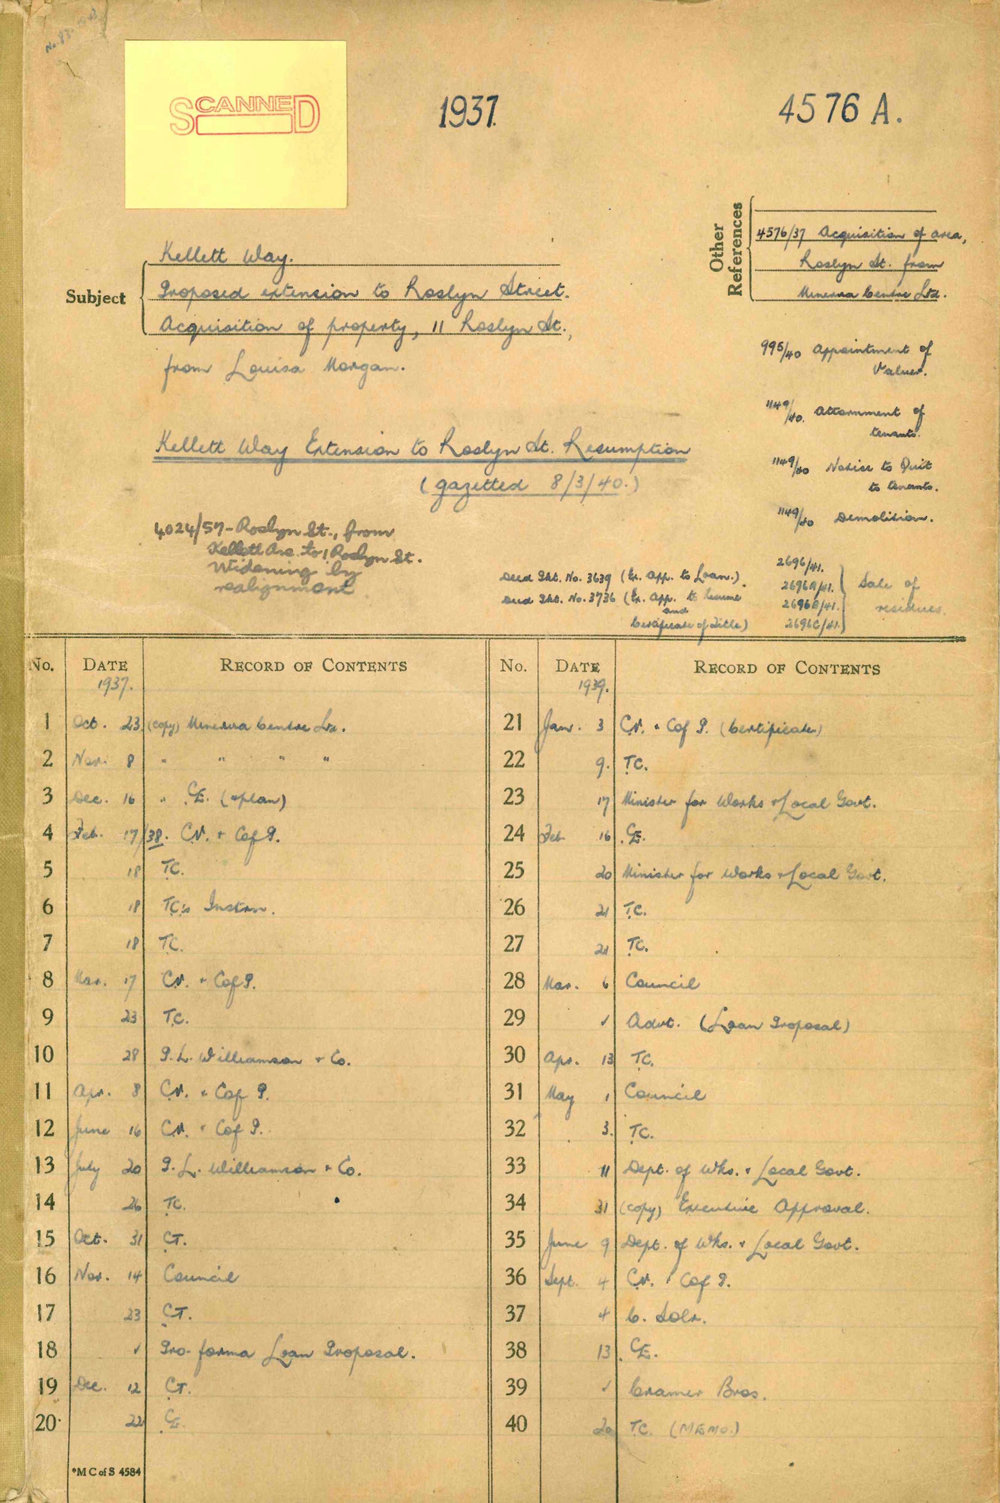 SCANNED
1937.
4576 A.
Other References
4576/37 Acquisition of area,
Roslyn St. from
Minerva Centre Ltd.
Subject
Kellett Way.
Proposed extension to Roslyn Street.
Acquisition of property, 11 Roslyn St.,
from Louisa Morgan.
995/40 Appointment of
Valuer.
1149/40. Attornment of
tenants.
Kellett Way Extension to Roslyn St. Resumption
(gazetted 8/3/40.)
1149/40 Notice to Quit
to tenants.
1149/40 Demolition.
4024/57 - Roslyn St., from
Kellett Ave. to, Roslyn St.
Widening by
realignment
Deed Pkt. No. 3639 (Ex. App. to Loan.)
Deed Pkt. No. 3736 (Ex. App. to Resume
and
Certificate of Title)
2696/41.
2696A/41.
2696B/41.
2696C/41.
Sale of
residues.
No. DATE RECORD OF CONTENTS
1937.
1 Oct. 23 (copy) Minerva Centre Ltd.
2 Nov. 8 " " " "
3 Dec. 16 " C.E. (+plan)
4 Feb. 17/38. C.V. + C of P.
5 18 T.C.
6 18 T.C's Instrn.
7 18 T.C.
8 Mar. 17 C.V. + C of P.
9 23 T.C.
10 28 P. L. Williamson + Co.
11 Apr. 8 C.V. + C of P.
12 June 16 C.V. + C of P.
13 July 20 P. L. Williamson + Co.
14 26 T.C.
15 Oct. 31 C.T.
16 Nov. 14 Council
17 23 C.T.
18 ✓ Pro-forma Loan Proposal.
19 Dec. 12 C.T.
20 22 C.E.
*M C of S 4584
No. DATE RECORD OF CONTENTS
1939.
21 Jan. 3 C.V. + C of P. (Certificate)
22 9. T.C.
23 17 Minister for Works + Local Govt.
24 Feb 16 C.E.
25 20 Minister for Works + Local Govt.
26 21 T.C.
27 21 T.C.
28 Mar. 6 Council
29 ✓ Advt. (Loan Proposal)
30 Apr. 13 T.C.
31 May 1 Council
32 3. T.C.
33 11 Dept. of Wks. + Local Govt.
34 31 (copy) Executive Approval.
35 June 9 Dept. of Wks. + Local Govt.
36 Sept. 4 C.V. + C of P.
37 4 C. Solr.
38 13 C.E.
39 ✓ Cramer Bros.
40 20 T.C. (MEMO.)